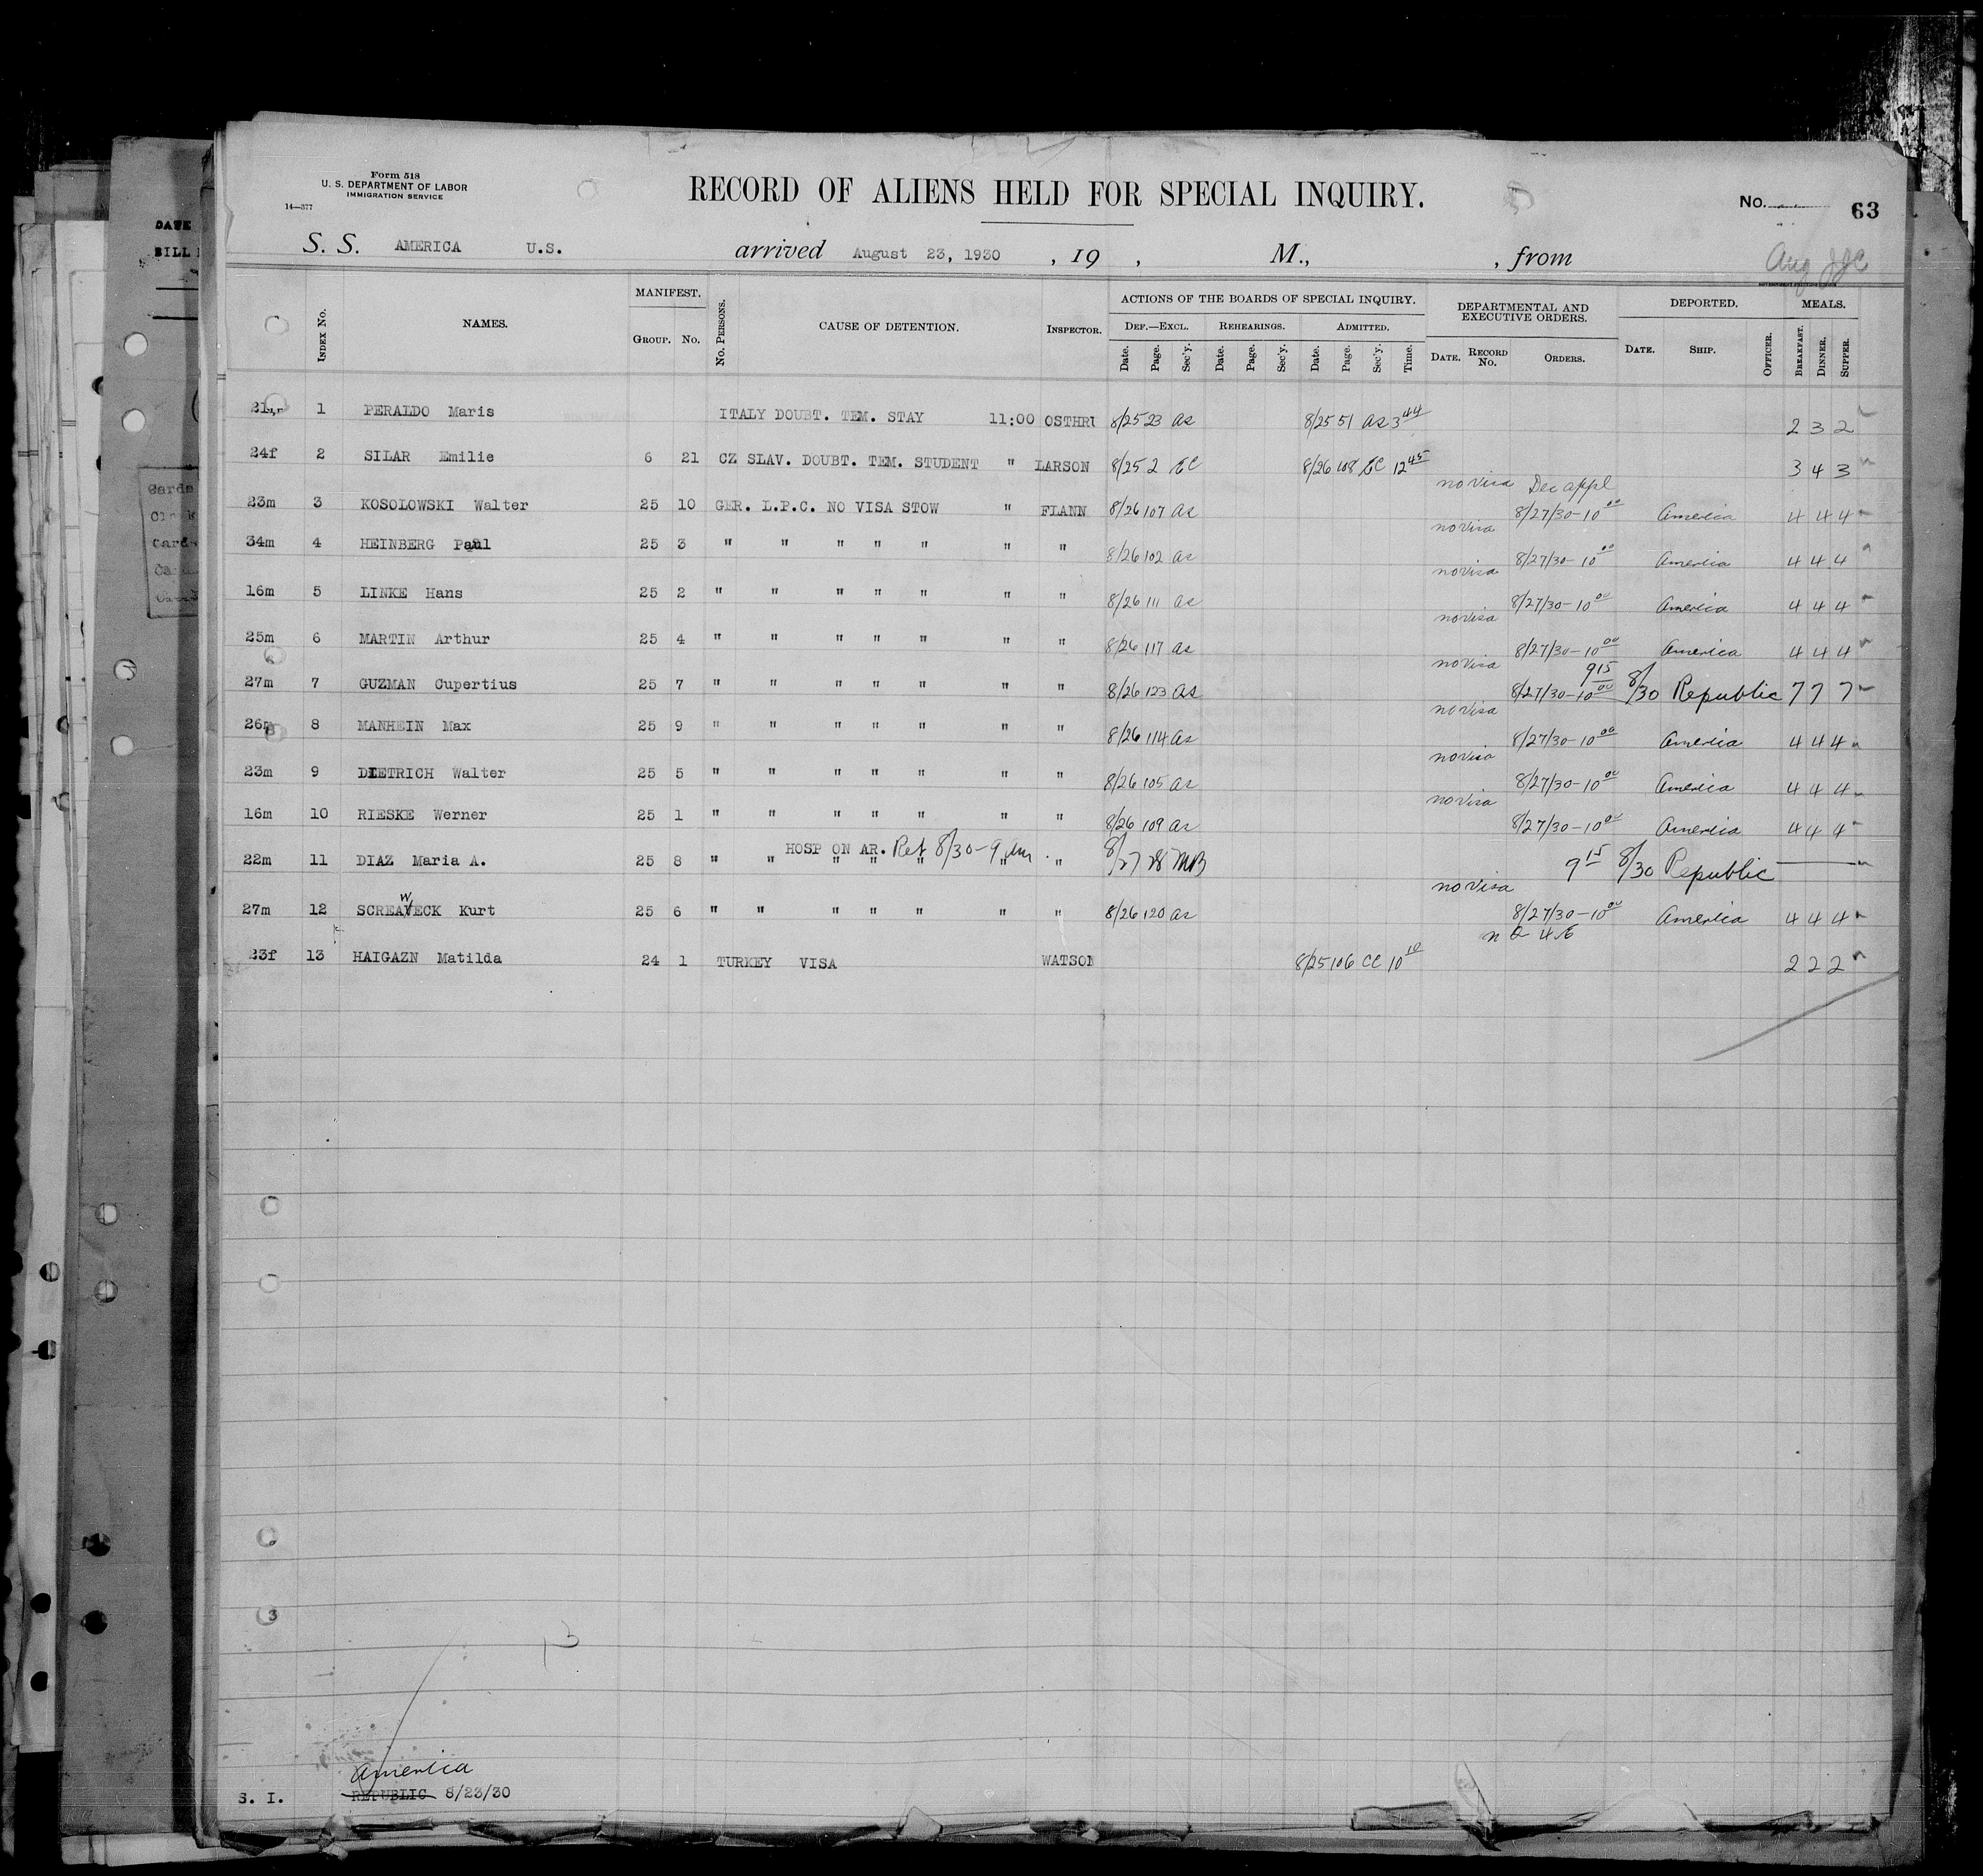 Form 518
U. S. DEPARTMENT OF LABOR
IMMIGRATION SERVICE
14—377
RECORD OF ALIENS HELD FOR SPECIAL INQUIRY.
No. 63
S. S. AMERICA U.S. arrived August 23, 1930 , 19 , M., , from
Aug
DATE
BILL
INDEX No. NAMES. MANIFEST. GROUP. No. No. PERSONS. CAUSE OF DETENTION. INSPECTOR. ACTIONS OF THE BOARDS OF SPECIAL INQUIRY. DEPARTMENTAL AND EXECUTIVE ORDERS. DEPORTED. MEALS.
DEF.—EXCL. REHEARINGS. ADMITTED.
Date. Page. Sec'y. Date. Page. Sec'y. Date. Page. Sec'y. Time. DATE. RECORD No. ORDERS. DATE. SHIP. OFFICER. BREAKFAST. DINNER. SUPPER.
1 PERALDO Maris ITALY DOUBT. TEM. STAY 11:00 OSTHRU 8/25 23 as 8/25 51 as 3 44 2 3 2
24f 2 SILAR Emilie 6 21 CZ SLAV. DOUBT. TEM. STUDENT " LARSON 8/25 2 EC 8/26 108 EC 12 45 3 4 3
no visa Dec appl
23m 3 KOSOLOWSKI Walter 25 10 GER. L.P.C. NO VISA STOW " FLANN 8/26 107 as 8/27/30-10 00 America 4 4 4
no visa
34m 4 HEINBERG Paul 25 3 " " " " " " " 8/26 102 as 8/27/30-10 00 America 4 4 4
no visa
16m 5 LINKE Hans 25 2 " " " " " " " 8/26 111 as 8/27/30-10 00 America 4 4 4
no visa
25m 6 MARTIN Arthur 25 4 " " " " " " " 8/26 117 as 8/27/30-10 00 America 4 4 4
no visa 9 15
27m 7 GUZMAN Cupertius 25 7 " " " " " " " 8/26 123 as 8/27/30-10 00 8/30 Republic 7 7 7
no visa
26m 8 MANHEIN Max 25 9 " " " " " " " 8/26 114 as 8/27/30-10 00 America 4 4 4
no visa
23m 9 DIETRICH Walter 25 5 " " " " " " " 8/26 105 as 8/27/30-10 00 America 4 4 4
no visa
16m 10 RIESKE Werner 25 1 " " " " " " " 8/26 109 as 8/27/30-10 00 America 4 4 4
HOSP ON AR. Ret 8/30-9 am
22m 11 DIAZ Maria A. 25 8 " " " " " " " 8/27 28 MB 9 15 8/30 Republic
no visa
27m 12 SCREAWECK Kurt 25 6 " " " " " " " 8/26 120 as 8/27/30-10 00 America 4 4 4
23f 13 HAIGAZN Matilda 24 1 TURKEY VISA WATSON 8/25 106 CC 10 10 2 2 2
13
America
S. I. REPUBLIC 8/23/30